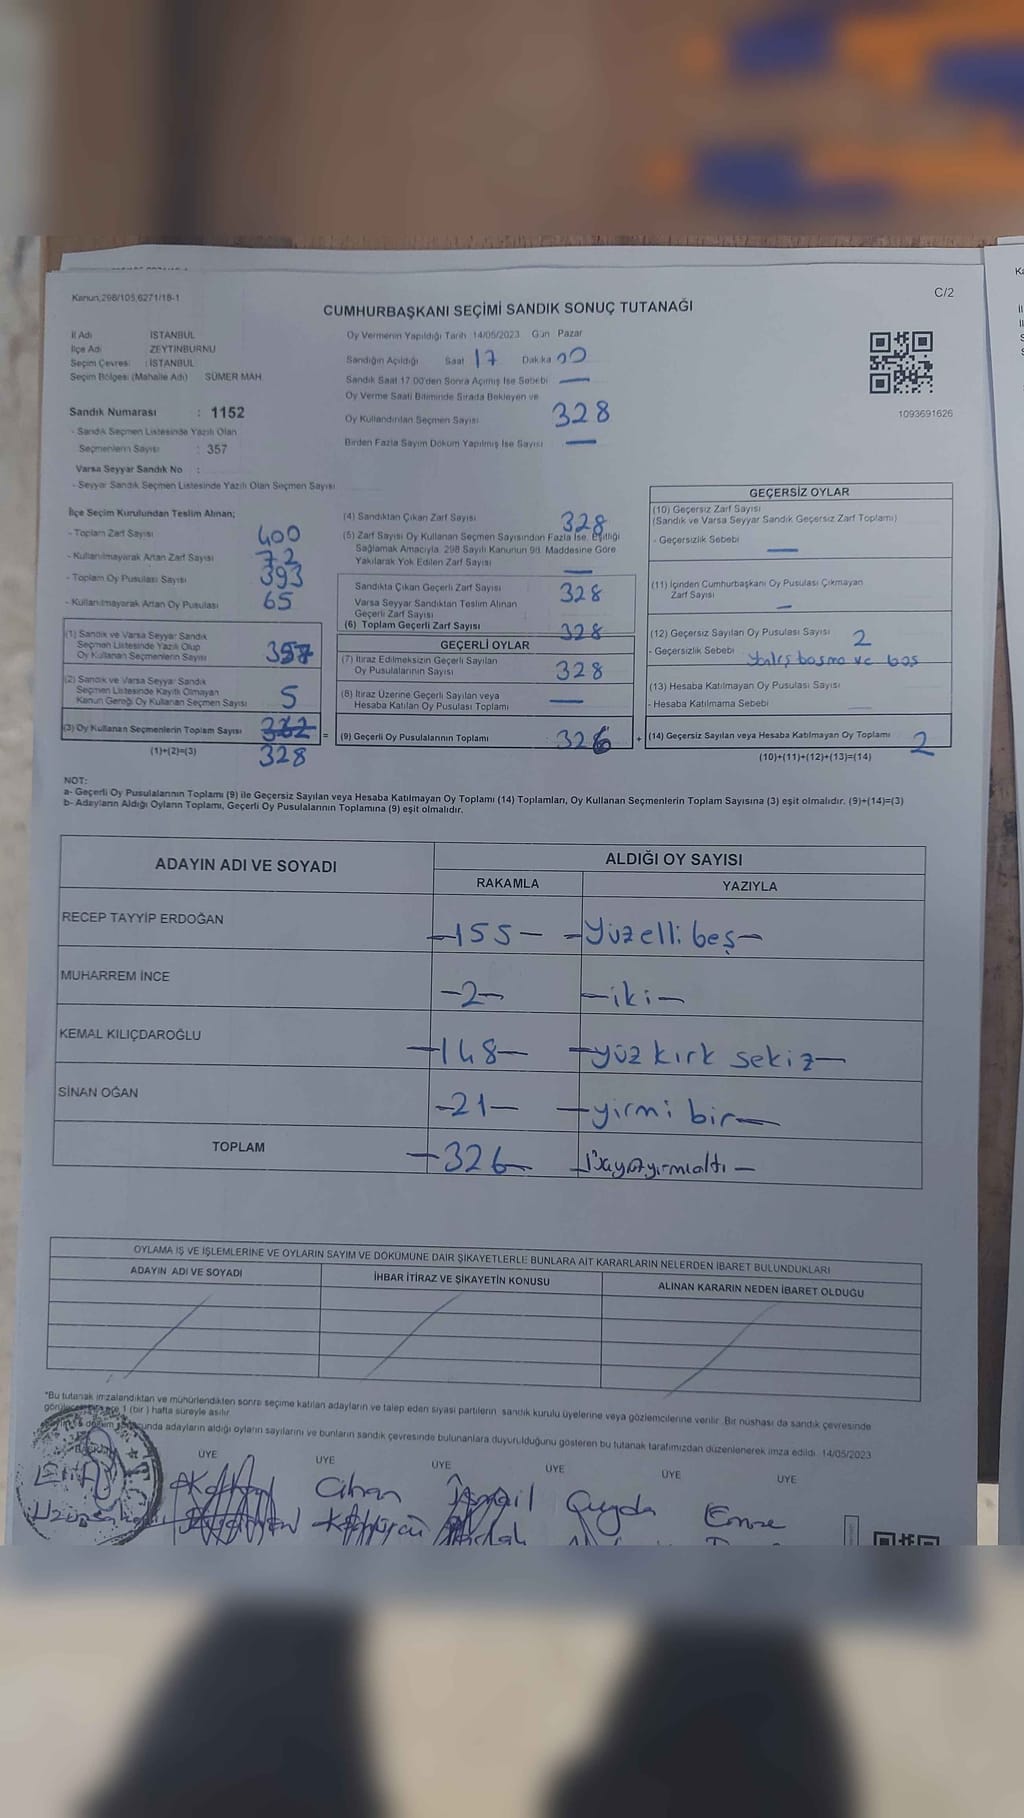 Kanun,298/105,6271/18-1
C/2
CUMHURBAŞKANI SEÇİMİ SANDIK SONUÇ TUTANAĞI
İl Adı İSTANBUL
İlçe Adı ZEYTİNBURNU
Seçim Çevresi : İSTANBUL
Seçim Bölgesi (Mahalle Adı) SÜMER MAH.
Sandık Numarası : 1152
- Sandık Seçmen Listesinde Yazılı Olan
Seçmenlerin Sayısı : 357
Varsa Seyyar Sandık No :
- Seyyar Sandık Seçmen Listesinde Yazılı Olan Seçmen Sayısı
Oy Vermenin Yapıldığı Tarih 14/05/2023 Gün Pazar
Sandığın Açıldığı Saat 17 Dakika 00
Sandık Saat 17.00'den Sonra Açılmış İse Sebebi —
Oy Verme Saati Bitiminde Sırada Bekleyen ve
Oy Kullandırılan Seçmen Sayısı 328
Birden Fazla Sayım Döküm Yapılmış İse Sayısı —
1093691626
İlçe Seçim Kurulundan Teslim Alınan;
- Toplam Zarf Sayısı 400
- Kullanılmayarak Artan Zarf Sayısı 72
- Toplam Oy Pusulası Sayısı 393
- Kullanılmayarak Artan Oy Pusulası 65
(1) Sandık ve Varsa Seyyar Sandık
Seçmen Listesinde Yazılı Olup
Oy Kullanan Seçmenlerin Sayısı 357
(2) Sandık ve Varsa Seyyar Sandık
Seçmen Listesinde Kayıtlı Olmayan
Kanun Gereği Oy Kullanan Seçmen Sayısı 5
(3) Oy Kullanan Seçmenlerin Toplam Sayısı 362 =
(1)+(2)=(3) 328
(4) Sandıktan Çıkan Zarf Sayısı 328
(5) Zarf Sayısı Oy Kullanan Seçmen Sayısından Fazla İse, Eşitliği
Sağlamak Amacıyla, 298 Sayılı Kanunun 98. Maddesine Göre
Yakılarak Yok Edilen Zarf Sayısı —
Sandıkta Çıkan Geçerli Zarf Sayısı 328
Varsa Seyyar Sandıktan Teslim Alınan
Geçerli Zarf Sayısı
(6) Toplam Geçerli Zarf Sayısı 328
GEÇERLİ OYLAR
(7) İtiraz Edilmeksizin Geçerli Sayılan
Oy Pusulalarının Sayısı 328
(8) İtiraz Üzerine Geçerli Sayılan veya
Hesaba Katılan Oy Pusulası Toplamı —
(9) Geçerli Oy Pusulalarının Toplamı : 326 +
GEÇERSİZ OYLAR
(10) Geçersiz Zarf Sayısı
(Sandık ve Varsa Seyyar Sandık Geçersiz Zarf Toplamı)
- Geçersizlik Sebebi —
(11) İçinden Cumhurbaşkanı Oy Pusulası Çıkmayan
Zarf Sayısı —
(12) Geçersiz Sayılan Oy Pusulası Sayısı 2
- Geçersizlik Sebebi yanlış basma ve boş
(13) Hesaba Katılmayan Oy Pusulası Sayısı
- Hesaba Katılmama Sebebi
(14) Geçersiz Sayılan veya Hesaba Katılmayan Oy Toplamı 2
(10)+(11)+(12)+(13)=(14)
NOT:
a- Geçerli Oy Pusulalarının Toplamı (9) ile Geçersiz Sayılan veya Hesaba Katılmayan Oy Toplamı (14) Toplamları, Oy Kullanan Seçmenlerin Toplam Sayısına (3) eşit olmalıdır. (9)+(14)=(3)
b- Adayların Aldığı Oyların Toplamı, Geçerli Oy Pusulalarının Toplamına (9) eşit olmalıdır.
ADAYIN ADI VE SOYADI ALDIĞI OY SAYISI
RAKAMLA YAZIYLA
RECEP TAYYİP ERDOĞAN -155- -Yüzelli beş-
MUHARREM İNCE -2- -iki-
KEMAL KILIÇDAROĞLU -148- -yüz kırk sekiz-
SİNAN OĞAN -21- -yirmi bir-
TOPLAM -326- -Üçyüzyirmialtı-
OYLAMA İŞ VE İŞLEMLERİNE VE OYLARIN SAYIM VE DÖKÜMÜNE DAİR ŞİKAYETLERLE BUNLARA AİT KARARLARIN NELERDEN İBARET BULUNDUKLARI
ADAYIN ADI VE SOYADI İHBAR İTİRAZ VE ŞİKAYETİN KONUSU ALINAN KARARIN NEDEN İBARET OLDUĞU
*Bu tutanak imzalandıktan ve mühürlendikten sonra seçime katılan adayların ve talep eden siyasi partilerin sandık kurulu üyelerine veya gözlemcilerine verilir. Bir nüshası da sandık çevresinde
1 (bir) hafta süreyle asılır.
adayların aldığı oyların sayılarını ve bunların sandık çevresinde bulunanlara duyurulduğunu gösteren bu tutanak tarafımızdan düzenlenerek imza edildi. 14/05/2023
BAŞKAN ÜYE ÜYE ÜYE ÜYE ÜYE ÜYE
Cihan İsmail Çağda Emre